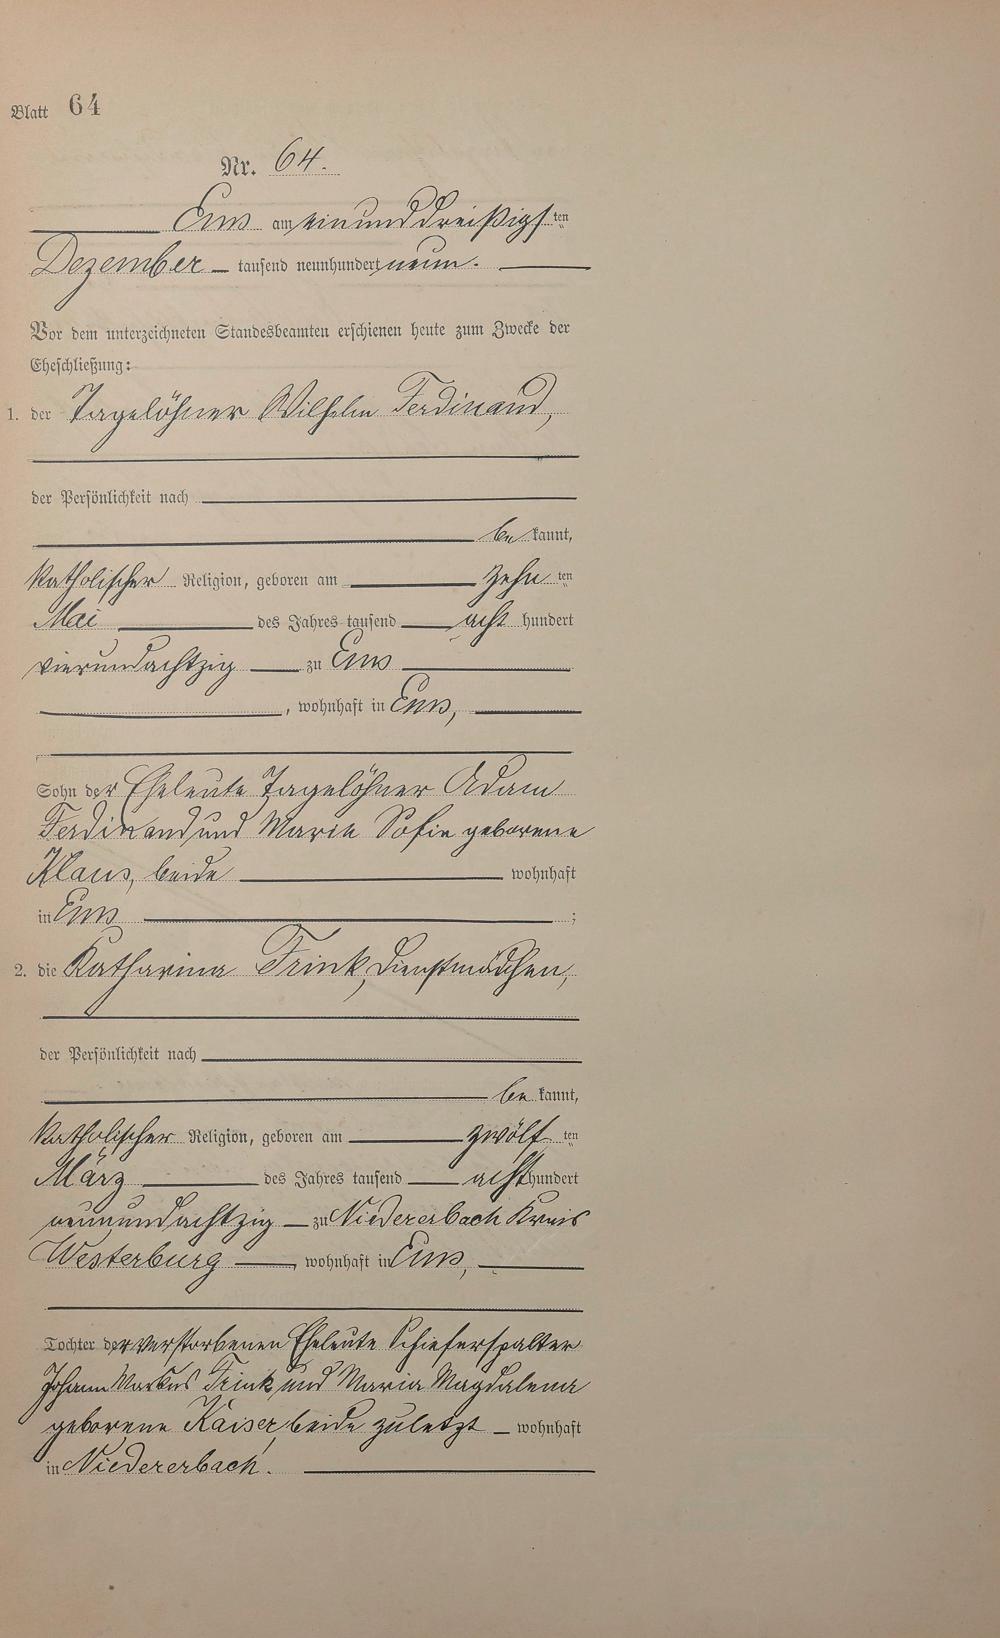 Blatt 64
Nr. 64.
Ems am einunddreißigsten
Dezember tausend neunhundert neun.
Vor dem unterzeichneten Standesbeamten erschienen heute zum Zwecke der
Eheschließung:
1. der Tagelöhner Wilhelm Ferdinand,
der Persönlichkeit nach
be kannt,
katholischer Religion, geboren am zehnten
Mai des Jahres tausend acht hundert
vierundachtzig zu Ems
, wohnhaft in Ems,
Sohn der Eheleute Tagelöhner Adam
Ferdinand und Maria Sofie geborene
Klaus, beide wohnhaft
in Ems ;
2. die Katharina Frink, Dienstmädchen,
der Persönlichkeit nach
be kannt,
katholischer Religion, geboren am zwölften
März des Jahres tausend acht hundert
neunundachtzig zu Niedererbach Kreis
Westerburg, wohnhaft in Ems,
Tochter der verstorbenen Eheleute Schieferspalter
Johann Markus Frink und Maria Magdalena
geborene Kaiser, beide zuletzt wohnhaft
in Niedererbach.